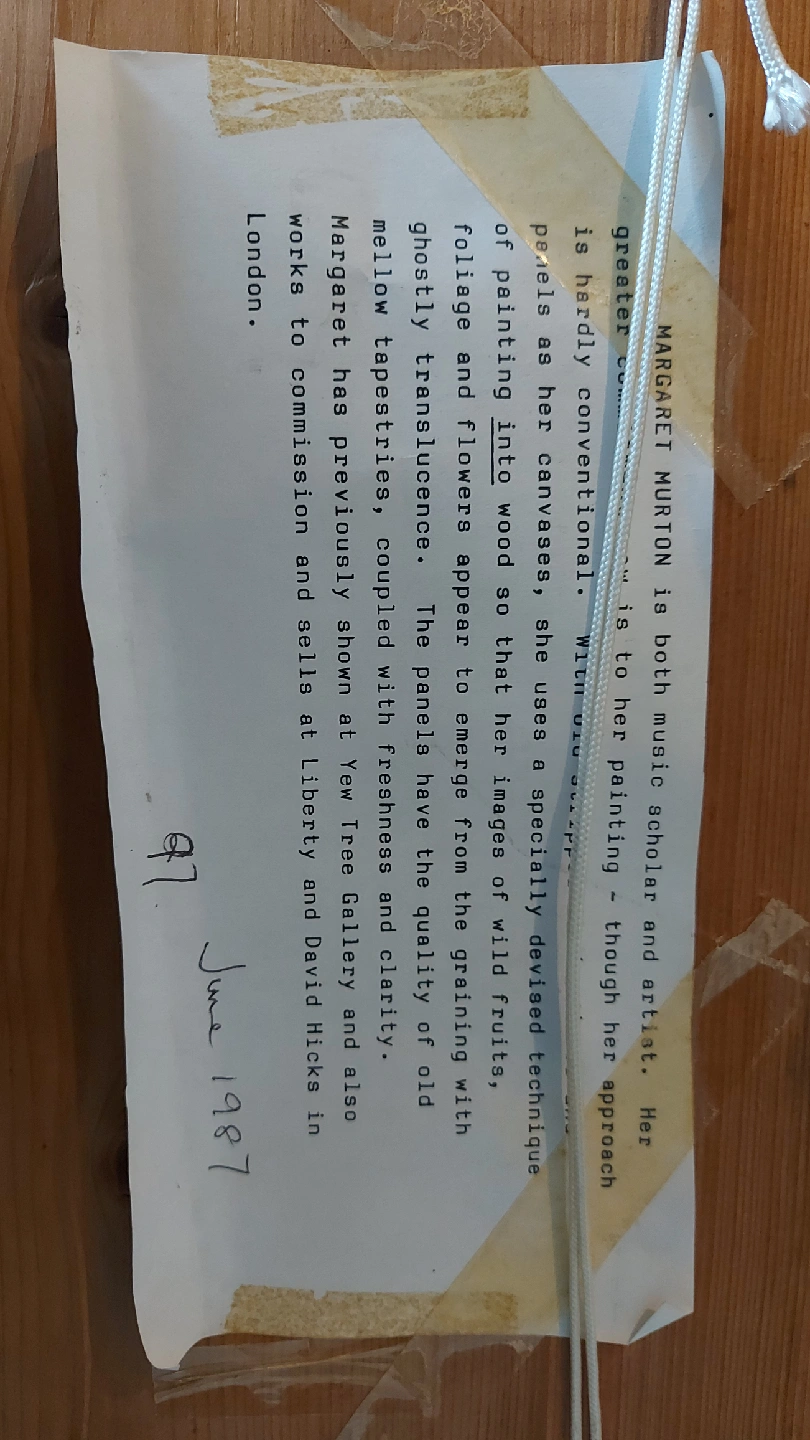 MARGARET MURTON is both music scholar and artist. Her
greater is to her painting - though her approach
is hardly conventional. With old
panels as her canvases, she uses a specially devised technique
of painting into wood so that her images of wild fruits,
foliage and flowers appear to emerge from the graining with
ghostly translucence. The panels have the quality of old
mellow tapestries, coupled with freshness and clarity.
Margaret has previously shown at Yew Tree Gallery and also
works to commission and sells at Liberty and David Hicks in
London.
97.
June 1987